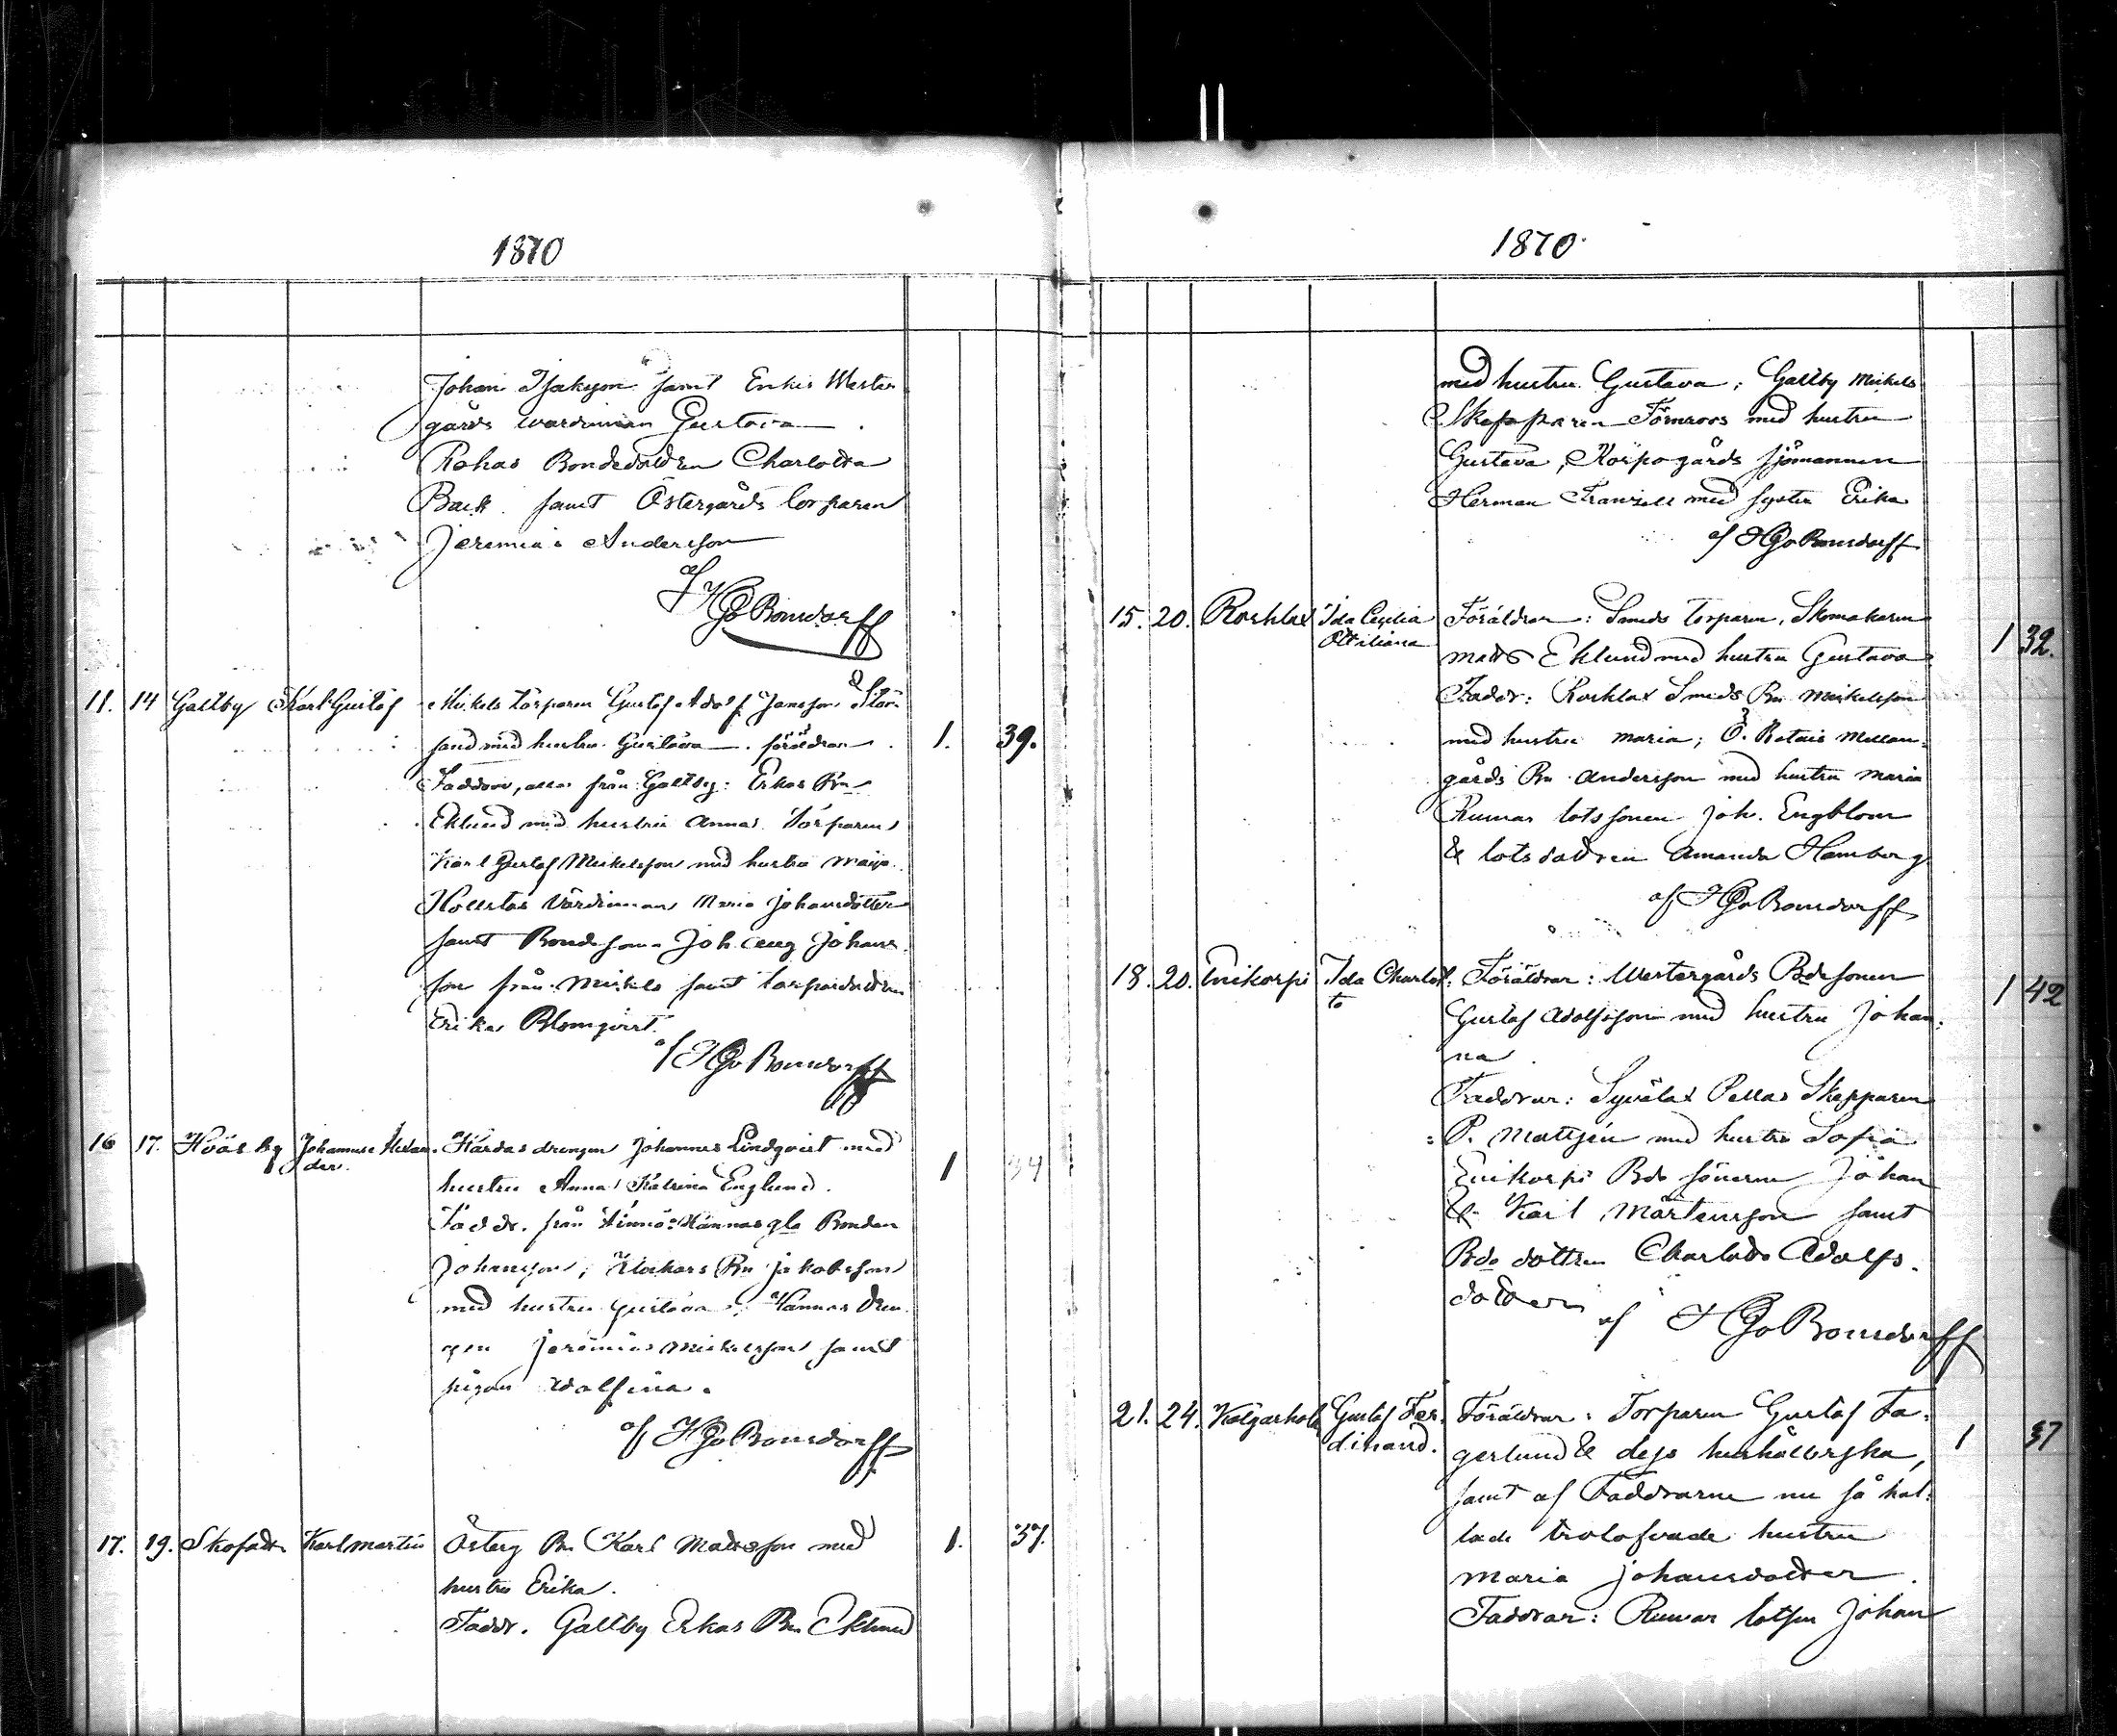 1870
Johan Isaksson samt Erikis Wester
gårds wärdinnan Gustava
Rokas Bondedottren Charlotta
Back samt Östergårds torparen
Jeremias Andersson
af HGvBonsdorff
11. 14 Galtby Karl Gustaf Mikels torparen Gustaf Adolf Jansson
sand med hustru Gustava föräldrar 1. 39.
Faddrar, alla från Galtby: Erkas Bn
Eklund med hustru Anna torparen
Karl Gustaf Mickelsson med hustru Maja
Wärdinnan Maria Johansdotter
samt Bondesonen Joh. Aug Johans
son från Mickels samt torparedottren
Erika Blomqvist.
af HGvBonsdorff
16 17. Johannes Alexan
der. drengen Johannes Lindqvist med
hustru Anna Katrina Englund. 1 34
Faddr. från Hannas gla Bonden
Johansson, Klockars Bn Jakobsson
med hustru Gustava, Hannas Dren
gen Jeremias Mickelsson samt
pigan Adolfina.
af HGvBonsdorff
17. 19. Karl Martin Österg Bn Karl Mattsson med 1. 37.
hustru Erika.
Faddr. Galtby Erkas Bn Eklund
1870
med hustru Gustava; Galtby Mickels
Skepparen Törnroos med hustru
Gustava, Korpogårds sjömannen
Herman Franzell med syster Erika
af HGvBonsdorff
15. 20. Roshlax Ida Cecilia
Ottiliana Föräldrar: Smeds torparen, Skomakaren
Matts Eklund med hustru Gustava 1 32.
Faddr: Roshlax Smeds Bn Mickelsson
med hustru Maria; Ö. Retais Mellan-
gårds Bn Andersson med hustru Maria
Rumar lotssonen Joh. Engblom
& lotsdottren Amanda Hamberg
af HGvBonsdorff
18. 20. Enikorpi Ida Charlot-
ta Föräldrar: Westergårds Bdesonen 1 42
Gustaf Adolfsson med hustru Johan-
na
Faddrar: Syvälax Pellas Skepparen
P. Mattsén med hustru Sofia
Enikorpi Bde sönerne Johan
& Karl Mårtensson samt
Bde döttren Charlotta Adolfs-
dotter
af HGvBonsdorff
21. 24. Kälgarholm Gustaf Fer-
dinand. Föräldrar: Torparen Gustaf Fa-
gerlund & dess hushållerska, 1 37
samt af Faddrarne nu så kal-
lade trolofvade hustru
Maria Johansdotter.
Faddrar: Rumar lotsen Johan